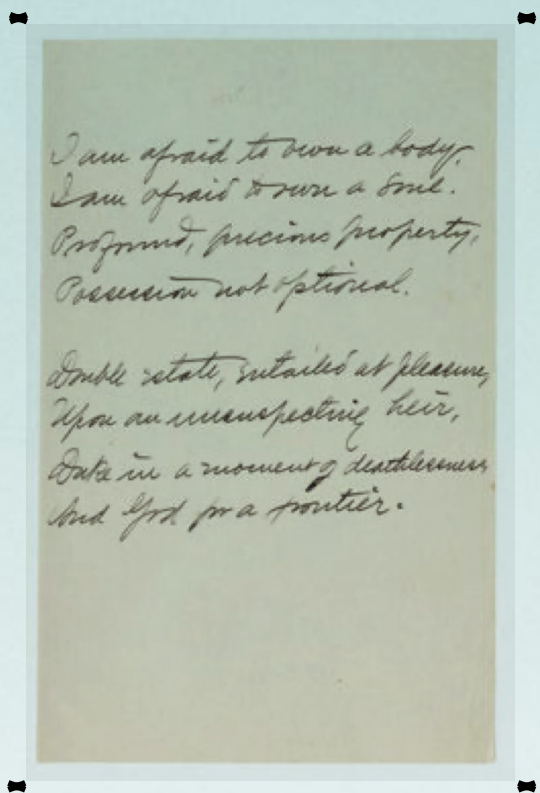 I am afraid to own a body,
I am afraid to own a soul.
Profound, precious property,
Possession not optional.
Double estate, entailed at pleasure,
Upon an unsuspecting heir,
Duke in a moment of deathlessness
And God for a frontier.